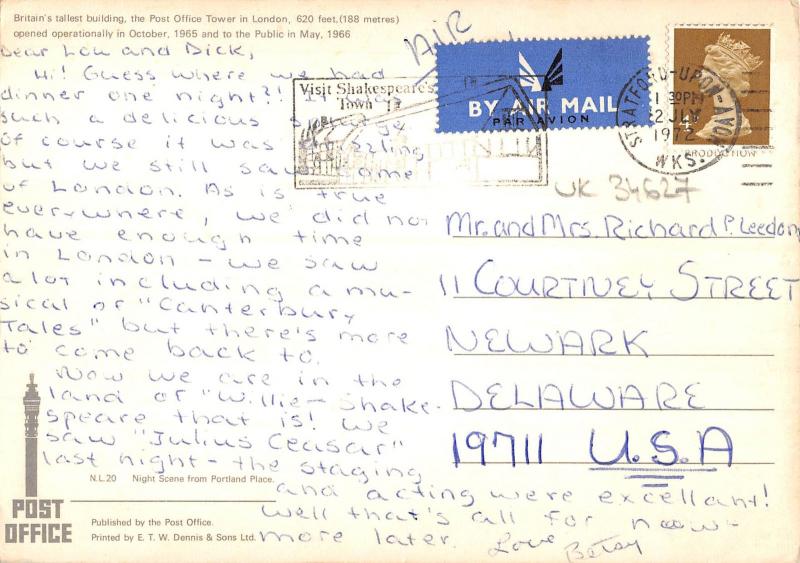 Britain's tallest building, the Post Office Tower in London, 620 feet,(188 metres)
opened operationally in October, 1965 and to the Public in May, 1966
Dear Lou and Dick,
Hi! Guess where we had
dinner one night?! It was
such a delicious
of course it was drizzling
but we still saw some
of London. As is true
everywhere, we did not
have enough time
in London - we saw
a lot including a mu-
sical of "Canterbury
Tales" but there's more
to come back to.
Now we are in the
land of "Willie-Shake-
speare that is! We
saw "Julius Ceasar"
last night - the staging
and acting were excellant!
Well that's all for now-
more later. Love Betsy
N.L.20 Night Scene from Portland Place.
POST
OFFICE
Published by the Post Office.
Printed by E. T. W. Dennis & Sons Ltd.
AIR
BY AIR MAIL
PAR AVION
Visit Shakespeare's
Town
STRATFORD-UPON-AVON
1 30PM
2 JLY
1972
WKS.
UK 34627
Mr. and Mrs. Richard P. Leedom
11 COURTNEY STREET
NEWARK
DELAWARE
19711 U.S.A